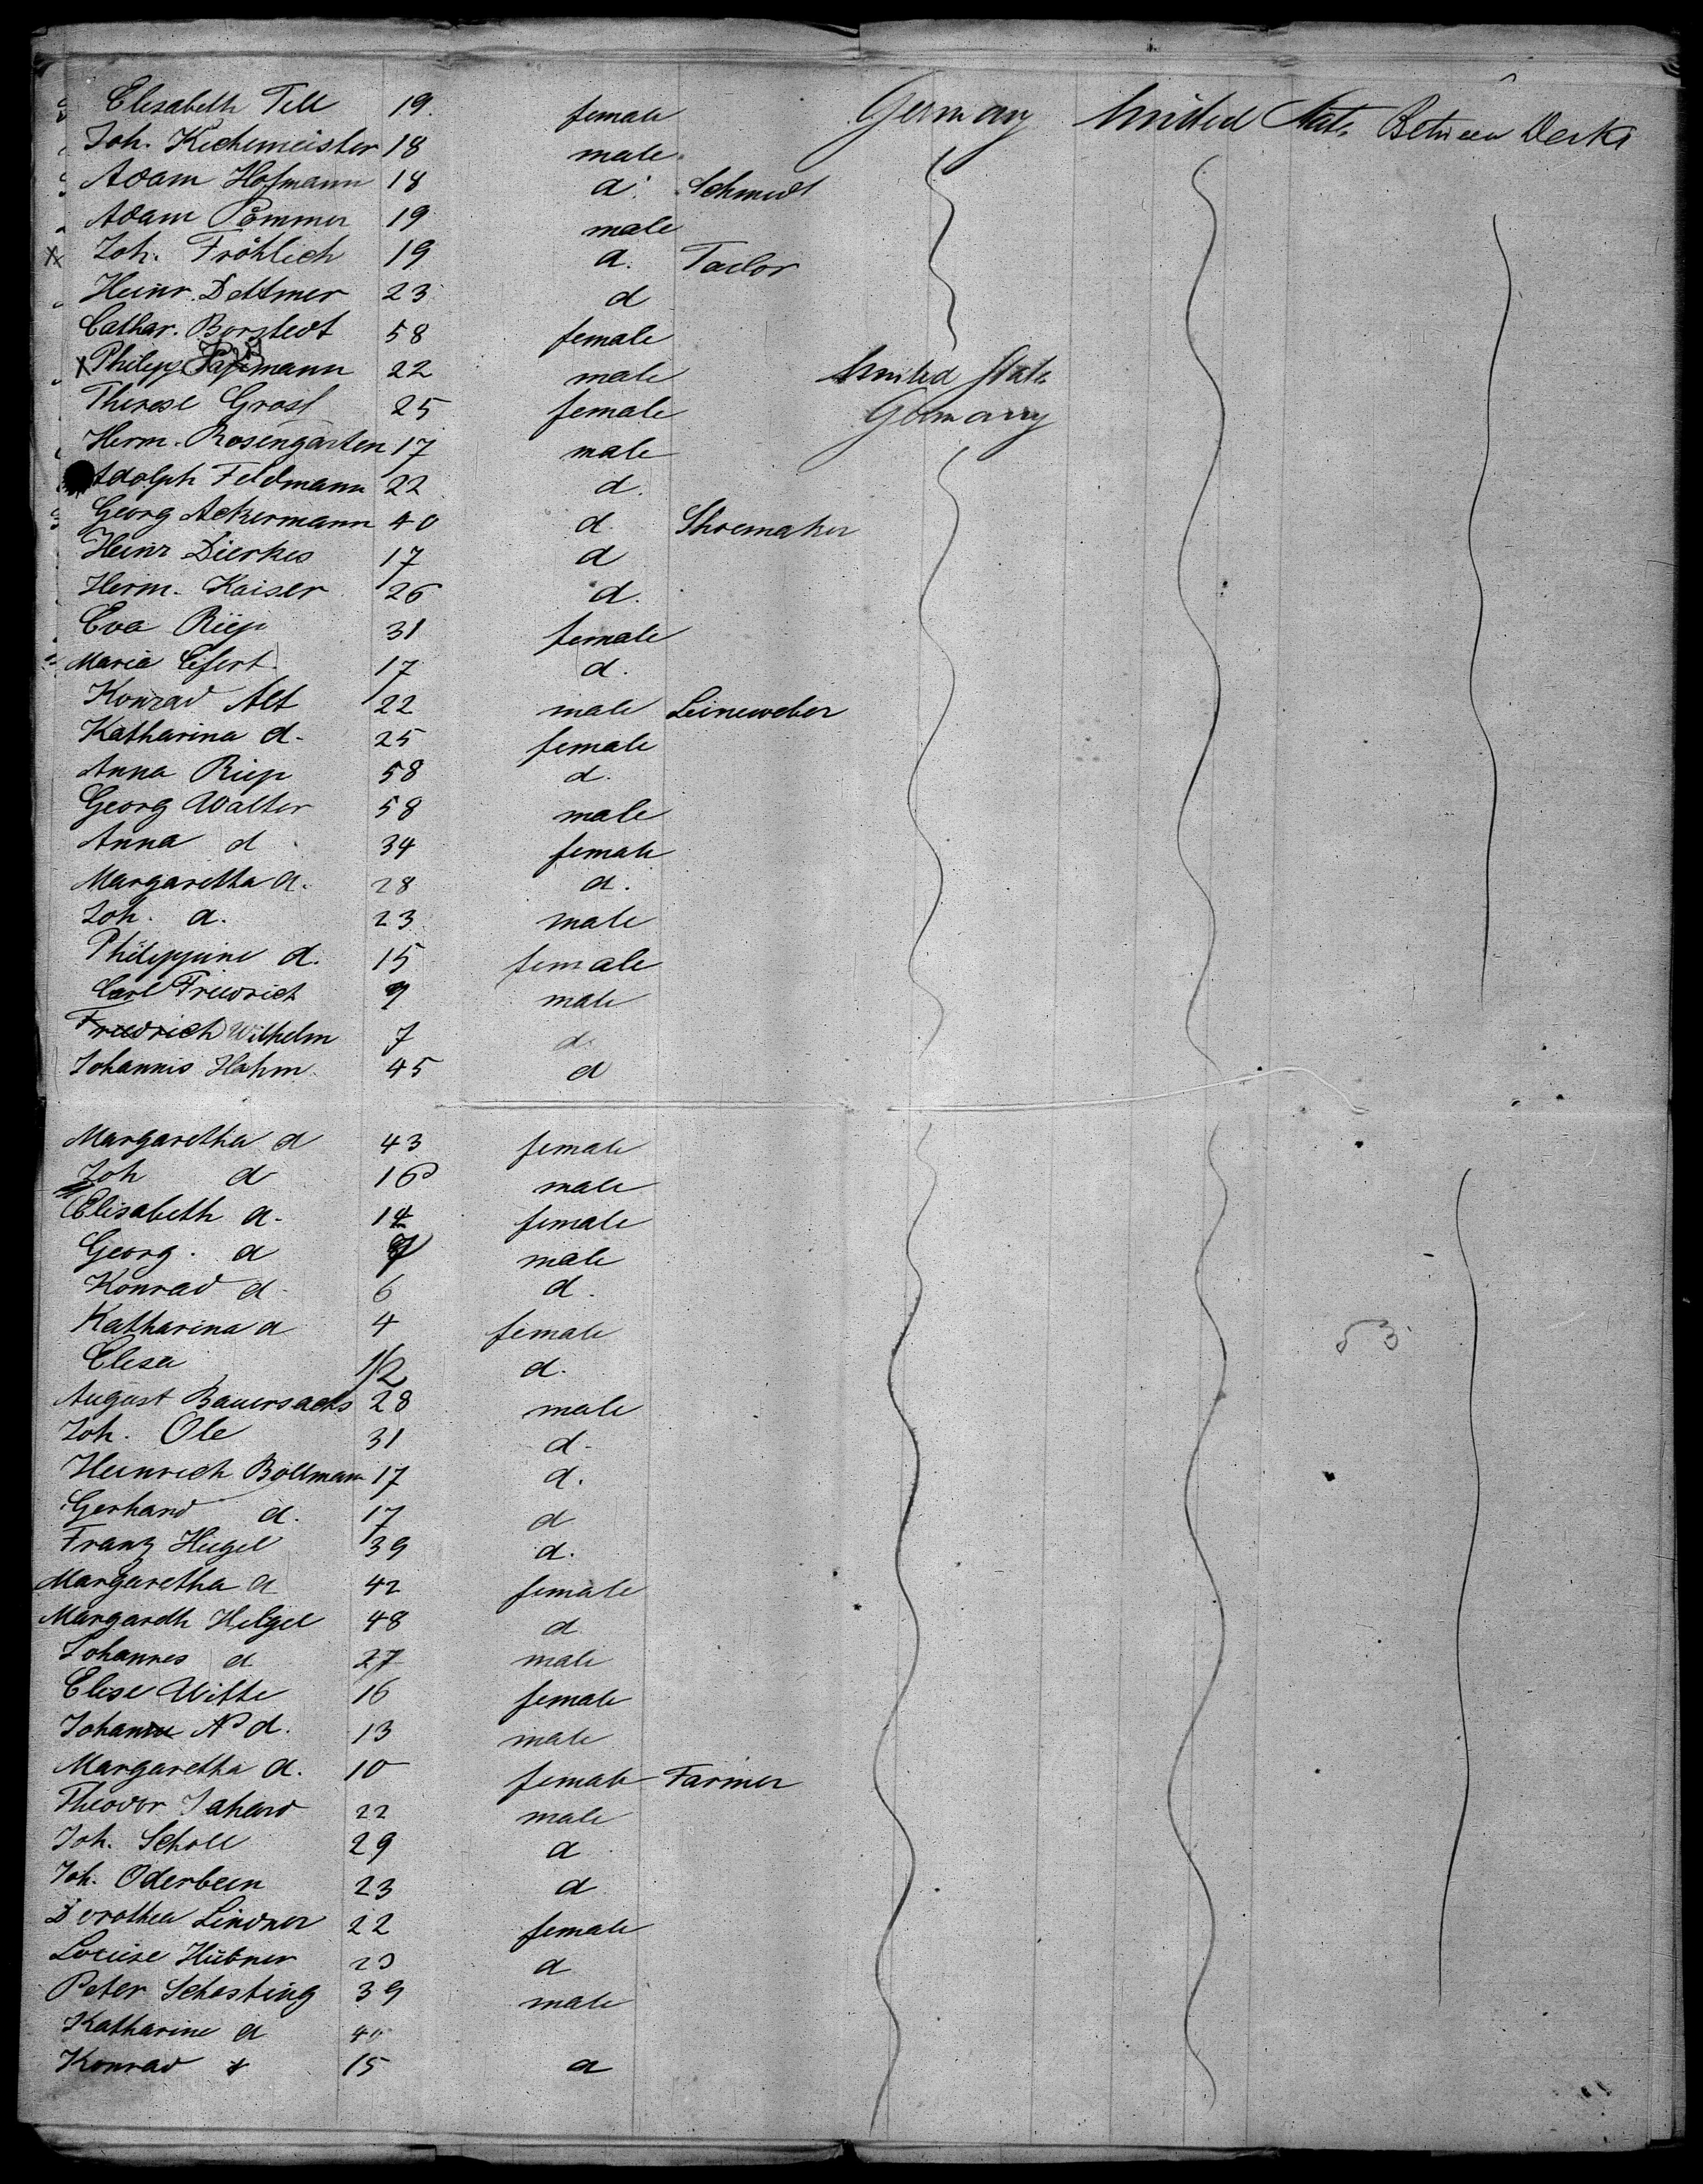 Elisabeth Tell 19 female Germany United States Between Decks
Joh. Kuchemeister 18 male
Adam Hofmann 18 d. Schmidt
Adam Pommer 19 male
Joh. Fröhlich 19 d. Tailor
Heinr. Dettmer 23 d
Cathar. Borstedt 58 female
Philipp 22 male United States
Therese Grosl 25 female Germany
Herm. Rosengarten 17 male
Adolph Feldmann 22 d.
Georg Ackermann 40 d. Shoemaker
Heinr Dierkes 17 d
Herm. Kaiser 26 d.
Eva Riep 31 female
Maria Eifert 17 d.
Konrad Alt 22 male Leineweber
Katharina d. 25 female
Anna Riep 58 d.
Georg Walter 58 male
Anna d 34 female
Margaretha d. 28 d.
Joh. d. 23 male
Philippine d. 15 female
Carl Friedrich 9 male
Friedrich Wilhelm 7 d.
Johannis Hahm 45 d
Margaretha d 43 female
Joh d 16 male
Elisabeth d. 14 female
Georg. d male
Konrad d. 6 d.
Katharina d 4 female 53
Elisa 1/2 d.
August Bauersachs 28 male
Joh. Ole 31 d.
Heinrich Bollmann 17 d.
Gerhard d. 17 d
Franz Hugel 39 d.
Margaretha d 42 female
Margareth Helgel 48 d
Johannes d 27 male
Elise Witte 16 female
Johann N d. 13 male
Margaretha d. 10 female Farmer
Theodor 22 male
Joh. Scholl 29 d
Joh. Oderbein 23 d
Dorothea Lindner 22 female
Louise Hübner 20 d
Peter Schasting 39 male
Katharine d 40
Konrad 15 d